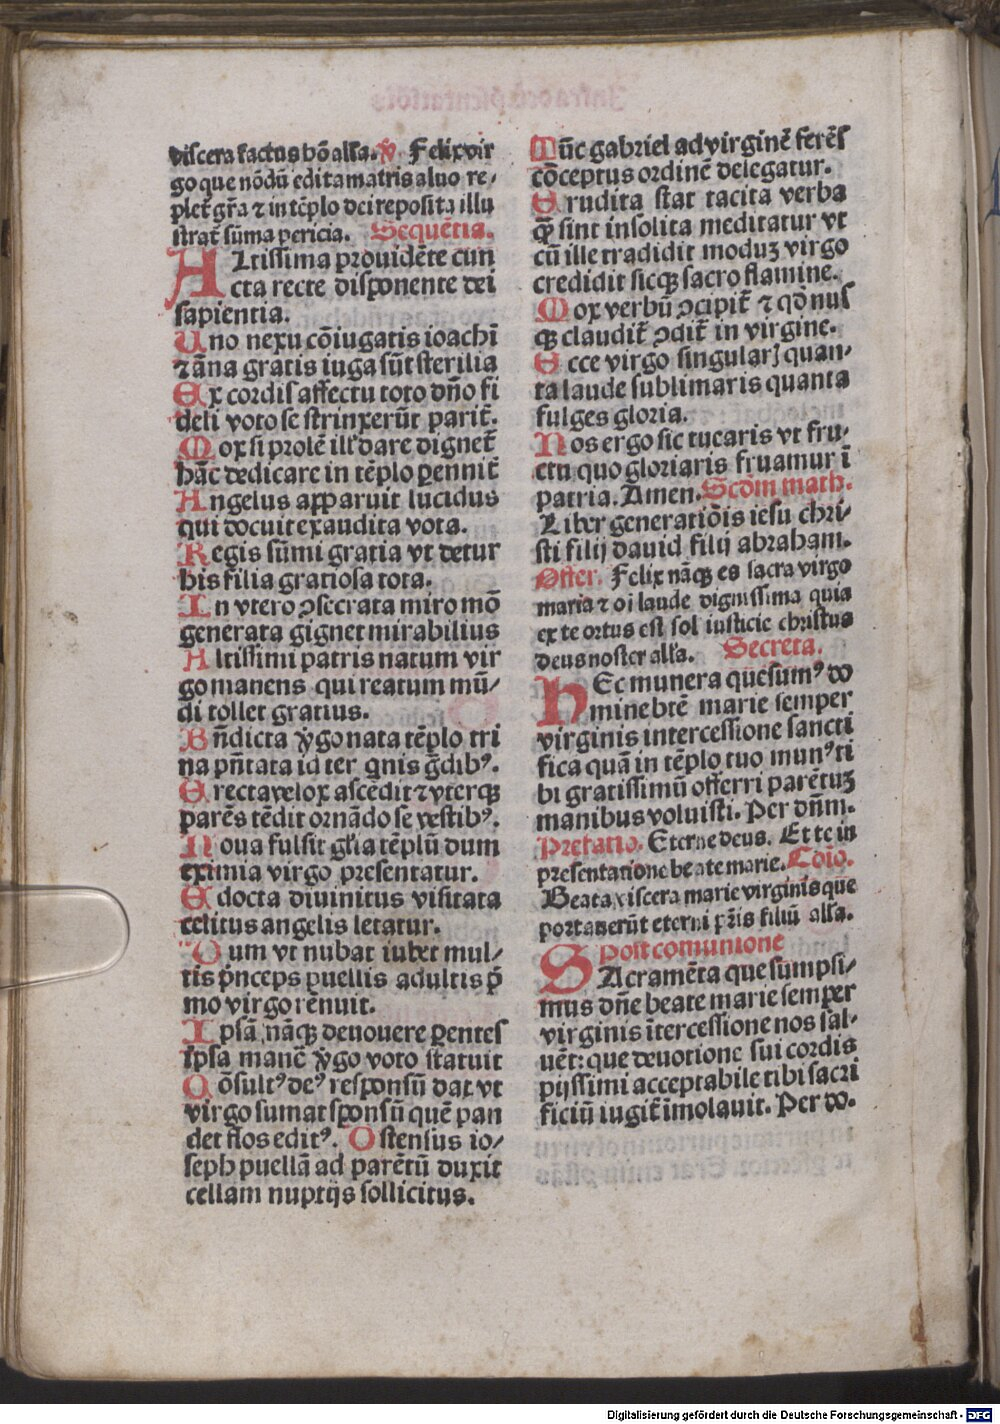 viscera factus hō alľa. ꝟ Felix vir
go que nōdū edita matris aluo re⸗
plet᷑ gr̄a ⁊ in tēplo dei reposita illu
strat᷑ sūma pericia. Sequētia.
ALtissima prouidēte cun
cta recte disponente dei
sapientia.
Uno nexu cōiugatis ioachī
⁊ āna gratis iuga sūt sterilia
Ex cordis affectu toto dn̄o fi
deli voto se strinxerūt parit᷑.
Mox si prolē illꝰ dare dignet᷑
hāc dedicare in tēplo ꝑennit᷑
Angelus apparuit lucidus
qui docuit exaudita vota.
Regis sūmi gratia vt detur
his filia gratiosa tota.
In vtero ꝯsecrata miro mō
generata gignet mirabilius
Altissimi patris natum vir
go manens qui reatum mū⸗
di tollet gratius.
Bn̄dicta ꝟgo nata tēplo tri
na pn̄tata id ter qnis gͣdibꝰ.
Erecta velox ascēdit ⁊ vterqꝫ
parēs tēdit ornādo se vestibꝰ.
Noua fulsit gľia tēplū dum
eximia virgo presentatur.
Edocta diuinitus visitata
celitus angelis letatur.
Dum vt nubat iubet mul⸗
tis pͥnceps puellis adultis pͥ
mo virgo rēnuit.
Ipsā nāqꝫ deuouere ꝑentes
ipsa manē ꝟgo voto statuit
Cōsultꝰ deꝰ responsū dat vt
virgo sumat sponsū quē pan
det flos editꝰ. Ostensus io⸗
seph puellā ad parētū duxit
cellam nuptijs sollicitus.
Tūc gabriel ad virginē ferēs
cōceptus ordinē delegatur.
Erudita stat tacita verba
qͣ sint insolita meditatur vt
cū ille tradidit moduꝫ virgo
credidit sicqꝫ sacro flamine.
Mox verbū ꝯcipit᷑ ⁊ qd̄ nus
qꝫ claudit᷑ ꝯdit᷑ in virgine.
Ecce virgo singularꝭ quan⸗
ta laude sublimaris quanta
fulges gloria.
Nos ergo sic tucaris vt fru⸗
ctu quo gloriaris fruamur ī
patria. Amen. Scd̄m math.
Liber generatiōis iesu chri⸗
sti filij dauid filij abraham.
Offer. Felix nāqꝫ es sacra virgo
maria ⁊ oī laude dignissima quia
ex te ortus est sol iusticie christus
deus noster alľa. Secreta.
HEc munera quesumꝰ do
mine btē marie semper
virginis intercessione sancti
fica quā in tēplo tuo munꝰ ti
bi gratissimū offerri parētuꝫ
manibus voluisti. Per dn̄m.
Prefatio. Eterne deus. Et te in
presentatione beate marie. Cōio.
Beata viscera marie virginis que
portauerūt eterni pr̄is filiū alľa.
Post comunione
SAcramēta que sumpsi⸗
mus dn̄e beate marie semper
virginis ītercessione nos sal⸗
uēt: que deuotione sui cordis
pijssimi acceptabile tibi sacri
ficiū iugit᷑ īmolauit. Per do.
Digitalisierung gefördert durch die Deutsche Forschungsgemeinschaft - DFG